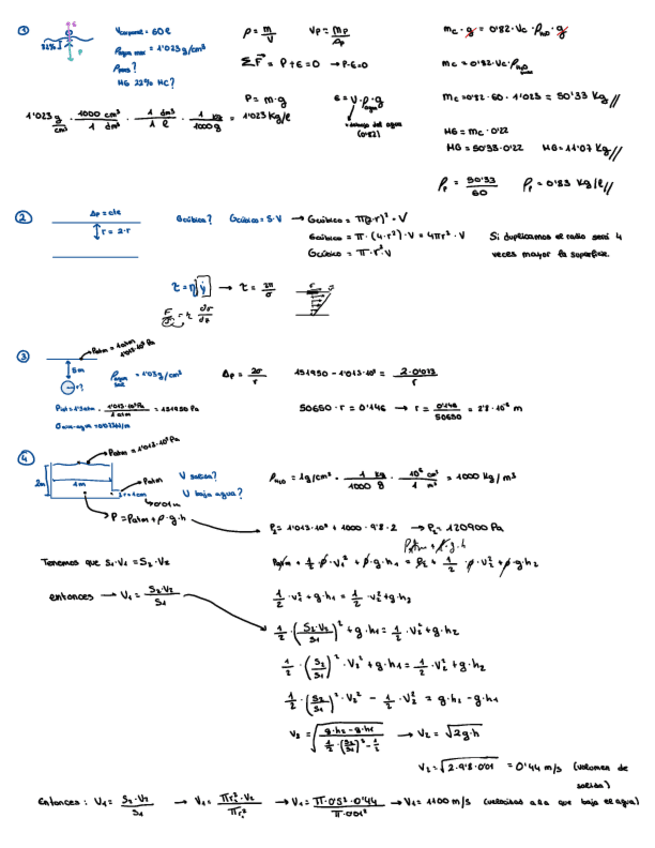 ① 82% E P Vcorporal = 60 ℓ
ρagua mar = 1'023 g/cm³
ρpers?
MG 22% MC?
ρ = m/V Vρ = mρ/Aρ
ΣF⃗ = P + E = 0 → P-E=0
P = m·g E = V·ρagua·g
(0'82)
1'023 g/cm³ · 1000 cm³/1 dm³ · 1 dm³/1 ℓ · 1 kg/1000 g = 1'023 Kg/ℓ
mc·g = 0'82·Vc·ρH₂O·g
mc = 0'82·Vc·ρH₂O
mc = 0'82·60·1'023 = 50'33 Kg//
MG = mc·0'22
MG = 50'33·0'22 MG = 11'07 Kg//
ρp = 50'33/60 ρp = 0'83 Kg/ℓ//
② Δp = cte
r = 2·r
Gcúbico? Gcúbico = S·V → Gcúbico = π(2·r)²·V
Gcúbico = π·(4·r²)·V = 4πr²·V
Gcúbico = π·r²·V
Si duplicamos el radio será 4
veces mayor la superficie.
③ Patm = 1 atm
1'013·10⁵ Pa
5m
r?
ρagua mar = 1'03 g/cm³
Δp = 2σ/r 151950 - 1'013·10⁵ = 2·0'073/r
1'013·10⁵ Pa/1 atm = 151950 Pa
50650·r = 0'146 → r = 0'146/50650 = 2'8·10⁻⁶ m
④ Patm = 1'013·10⁵ Pa
2m 1m Patm
r = 1cm
0'01m
V salida?
V baja agua?
P = Patm + ρ·g·h
ρH₂O = 1g/cm³ · 1 kg/1000 g · 10⁶ cm³/1 m³ = 1000 Kg/m³
P₂ = 1'013·10⁵ + 1000·9'8·2 → P₂ = 120900 Pa
Patm + ρ·g·h
Tenemos que S₁·V₁ = S₂·V₂
Patm + 1/2·ρ·V₁² + ρ·g·h₁ = P₂ + 1/2·ρ·V₂² + ρ·g·h₂
entonces → V₁ = S₂·V₂/S₁
1/2·V₁² + g·h₁ = 1/2·V₂² + g·h₂
1/2·(S₂·V₂/S₁)² + g·h₁ = 1/2·V₂² + g·h₂
1/2·(S₂/S₁)²·V₂² + g·h₁ = 1/2·V₂² + g·h₂
1/2·(S₂/S₁)²·V₂² - 1/2·V₂² = g·h₂ - g·h₁
V₂ = √(g·h₂ - g·h₁ / 1/2·(S₂/S₁)² - 1/2) → V₂ = √2g·h
V₂ = √2·9'8·0'01 = 0'44 m/s (volumen de
salida)
Entonces: V₁ = S₂·V₂/S₁ → V₁ = πr₂²·V₂/πr₁² → V₁ = π·0'5²·0'44/π·0'01² → V₁ = 1100 m/s (velocidad a la que baja el agua)